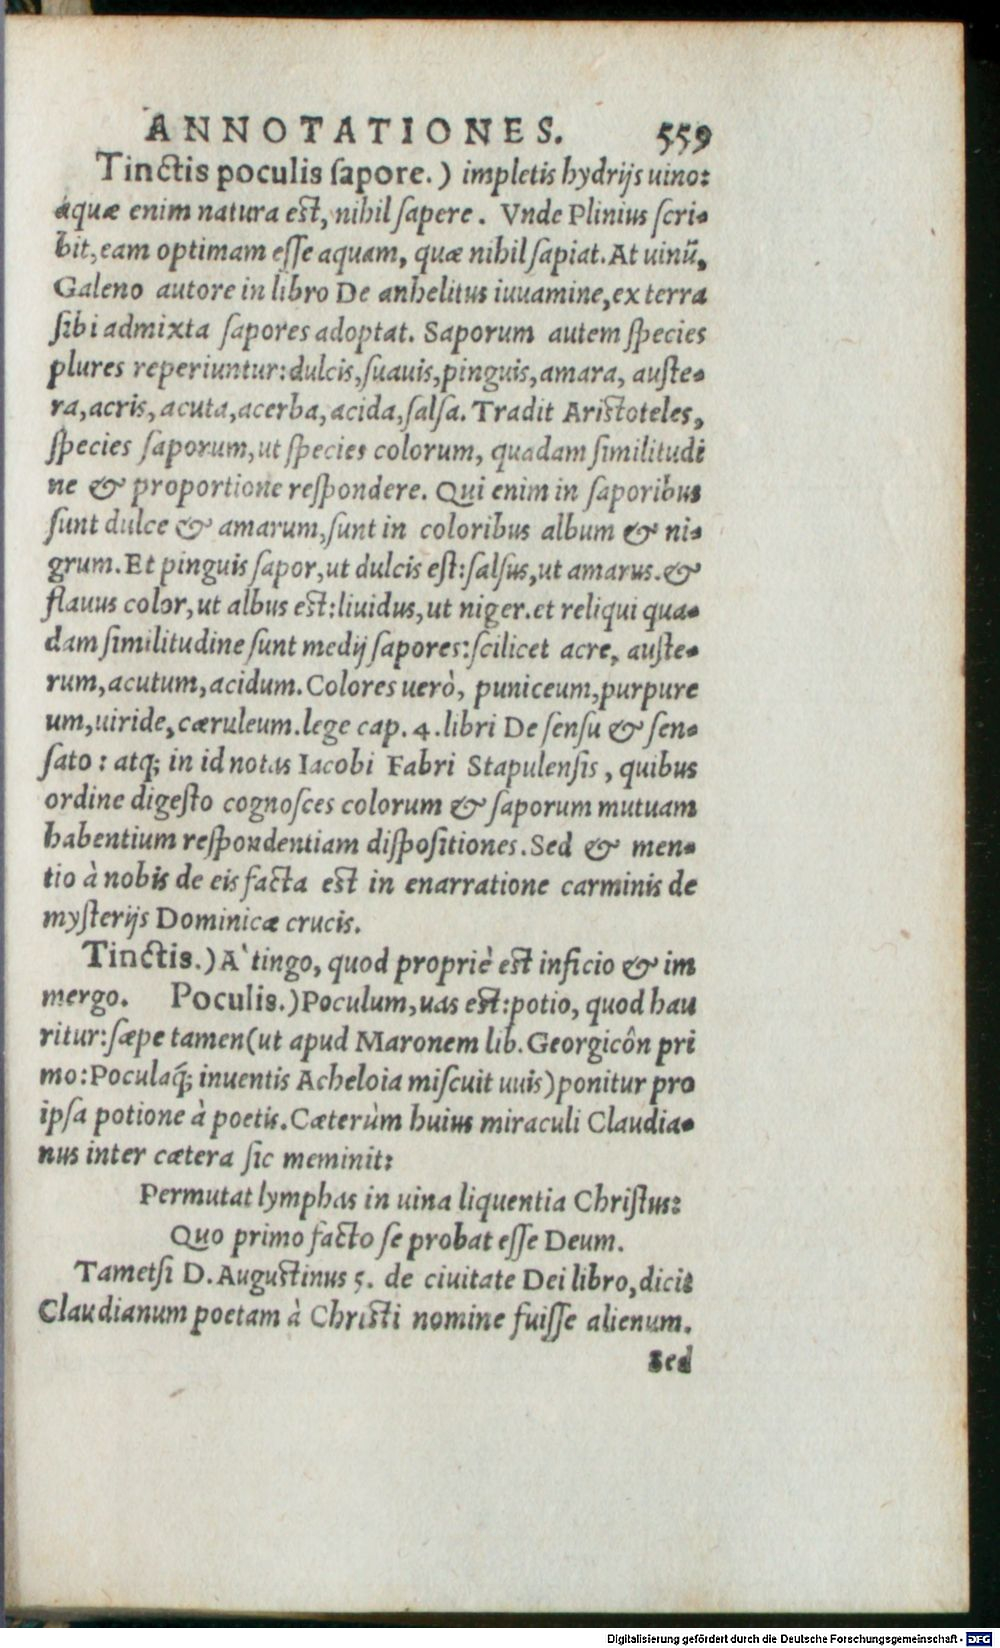 ANNOTATIONES. 559
Tinctis poculis ſapore.) impletis hydrijs uino:
aquæ enim natura est, nihil ſapere. Vnde Plinius ſcri-
bit, eam optimam eſſe aquam, quæ nihil ſapiat. At uinũ,
Galeno autore in libro De anhelitus iuuamine, ex terra
ſibi admixta ſapores adoptat. Saporum autem ſpecies
plures reperiuntur: dulcis, ſuauis, pinguis, amara, auſte-
ra, acris, acuta, acerba, acida, ſalſa. Tradit Aristoteles,
ſpecies ſaporum, ut ſpecies colorum, quadam ſimilitudi
ne & proportione reſpondere. Qui enim in ſaporibus
ſunt dulce & amarum, ſunt in coloribus album & ni-
grum. Et pinguis ſapor, ut dulcis eſt: ſalſus, ut amarus. &
flauus color, ut albus est: liuidus, ut niger. et reliqui qua-
dam ſimilitudine ſunt medij ſapores: ſcilicet acre, auſte-
rum, acutum, acidum. Colores uerò, puniceum, purpure
um, uiride, cæruleum. lege cap. 4. libri De ſenſu & ſen-
ſato: atq; in id notas Iacobi Fabri Stapulenſis, quibus
ordine digeſto cognoſces colorum & ſaporum mutuam
habentium reſpondentiam diſpoſitiones. Sed & men-
tio à nobis de eis facta est in enarratione carminis de
myſterijs Dominicæ crucis.
Tinctis.) A` tingo, quod propriè est inficio & im
mergo. Poculis.) Poculum, uas est: potio, quod hau
ritur: ſæpe tamen (ut apud Maronem lib. Georgicôn pri
mo: Poculaq́; inuentis Acheloia miſcuit uuis) ponitur pro
ipſa potione à poetis. Cæterùm huius miraculi Claudia-
nus inter cætera ſic meminit:
Permutat lymphas in uina liquentia Chriſtus:
Quo primo facto ſe probat eſſe Deum.
Tametſi D. Augustinus 5. de ciuitate Dei libro, dicit
Claudianum poetam à Christi nomine fuiſſe alienum.
Sed
Digitalisierung gefördert durch die Deutsche Forschungsgemeinschaft - DFG